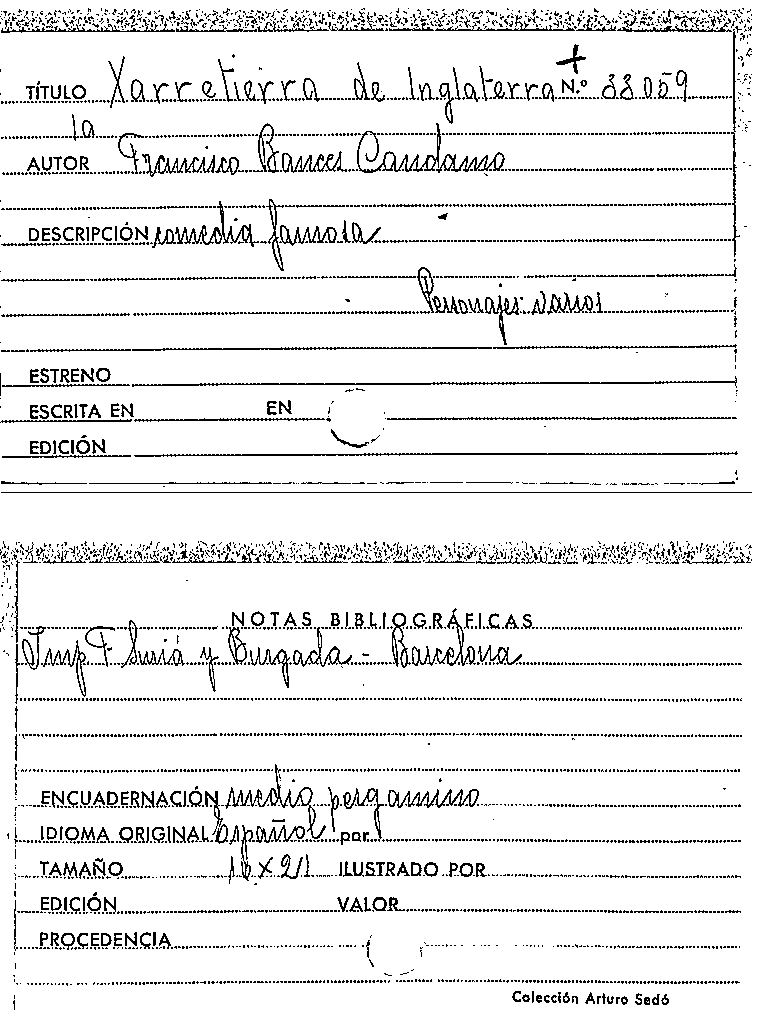 TÍTULO Xarretierra de Inglaterra + N.º 33059
la
AUTOR Francisco Bances Candamo
DESCRIPCIÓN comedia famosa
Personajes: varios
ESTRENO
ESCRITA EN EN
EDICIÓN
NOTAS BIBLIOGRÁFICAS
Imp F. Suriá y Burgada - Barcelona
ENCUADERNACIÓN medio pergamino
IDIOMA ORIGINAL Español por
TAMAÑO 16 x 21 ILUSTRADO POR
EDICIÓN VALOR
PROCEDENCIA
Colección Arturo Sedó